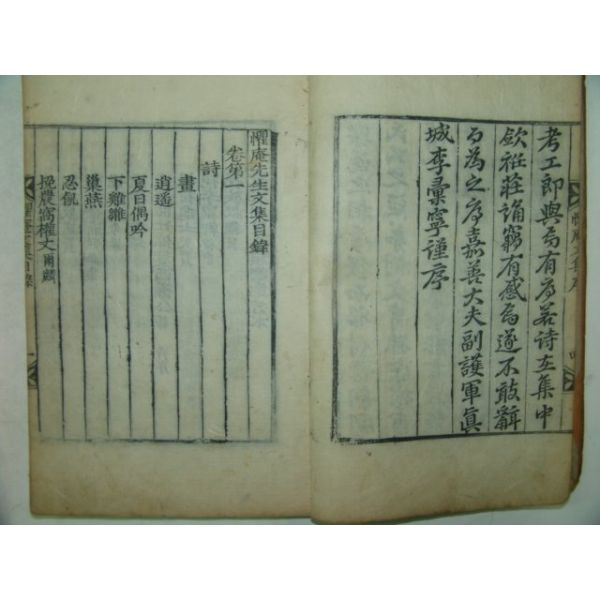 考工郎與焉有序若詩在集中
欽祗莊誦窮有感焉遂不敢辭
而為之序嘉善大夫副護軍眞
城李彙寧謹序
懼庵先生文集目錄
卷第一
詩
畫
逍遥
夏日偶吟
下雞雛
巢燕
忍飢
挽農窩權丈爾麟